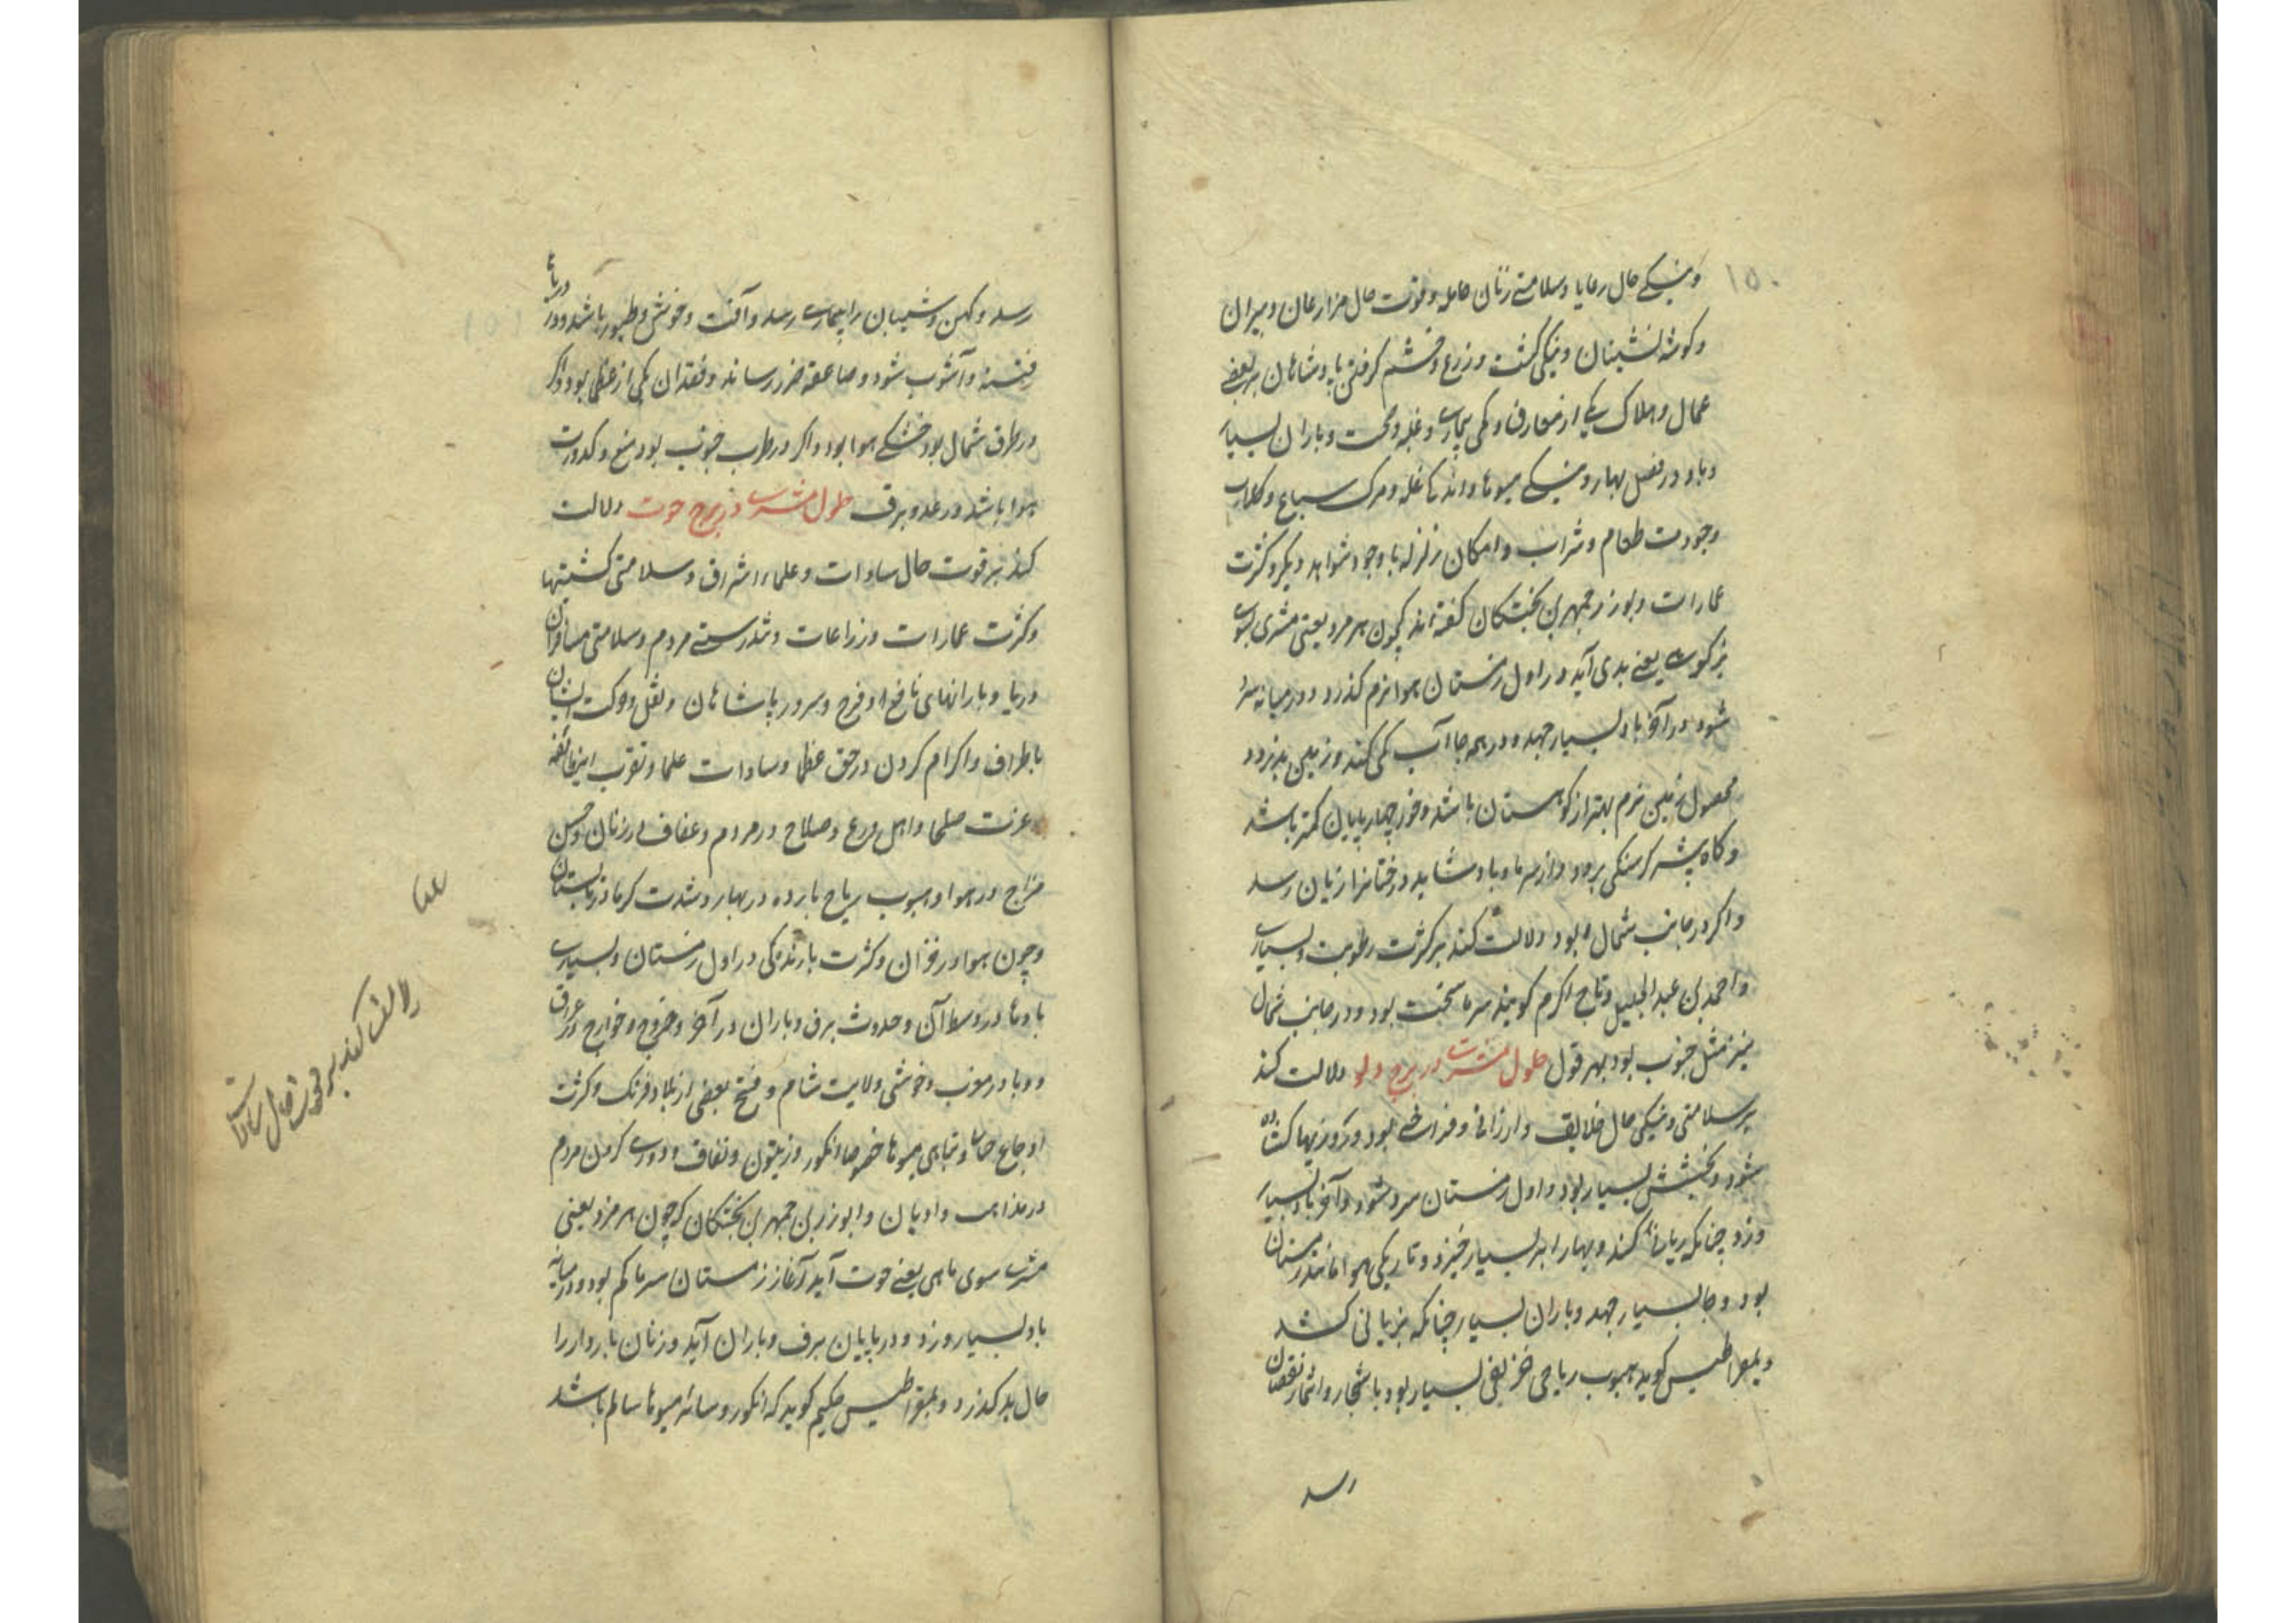 ۱۵۰
ونیکی حال رعایا وسلامتی زنان حامله وقوت حال مزارعان وپیران
وکوشه نشینان ونیکی کشت وزرع وخشم کرفتن پادشاهان بر بعضی
عمال وهلاک یکی از معارف وکمی بیماری وغلبه وباران بسیار
وباد در فصل بهار ونیکی میوها ودانه‌ها غله ومرک سباع وکلاب
وجودت طعام وشراب وامکان زلزله با وجود شواهد دیکر وکثرت
عمارات وبوزرجمهر بن بختکان کفته‌اند که چون هرمزد یعنی مشتری بسوی
بزکوهی یعنی بجدی آید در اول زمستان هوا نرم کذرد ودر میانه سرد
شود در آخر باد بسیار جهد ودر همه جا آب کمی کند وزمین بلرزد و
محصول زمین نرم بهتر از کوهستان باشد وخور چهارپایان کمتر باشد
وکاه بیشتر کرسنکی برود واز سرما وباد شاید درختانرا زیان رسد
واکر در جانب شمال بود دلالت کند بر کثرت رطوبت وبسیاری
واحمد بن عبدالجلیل وتاج اکرم کویند سرما سخت بود ودر جانب شمال
نیز مثل جنوب بود بهر قول حلول مشتری در برج دلو دلالت کند
بر سلامتی ونیکی حال خلایق وارزانی وفراخی بود ودر روزیها کشاده
شود وبخشش بسیار بود واول زمستان سرد شود وآخر باد بسیار
وزد چنانکه زیانها کند وبهار ابر بسیار خیزد وتاریکی هوا مانند زمستان
بود وجا بسیار جهد وباران بسیار چنانکه بزیانی کشد
ویمقراطیس کوید هبوب ریاحی خریفی بسیار بود باشجار واثمار نقصان
رسد
رسد وکهن وشیبان را بیماری رسد وآفت وحوش وطیور باشد ودر
دریا
فتنه وآشوب شود وصاعقه ضرر رساند وفقدان یکی از عظما بود واکر
در طرف شمال بود خشکی هوا بود واکر در طرف جنوب بود میغ وکدورت
هوا باشد ورعد وبرق حلول مشتری در برج حوت دلالت
کند بر قوت حال سادات وعلما واشراف وسلامتی کشتیها
وکثرت عمارات وزراعات وتندرستی مردم وسلامتی مسافران
دریا وبارانهای نافع وفرح وسرور پادشاهان ونقل وحرکت ایشان
باطراف واکرام کردن در حق عظما وسادات علما وتقرب این طایفه
وعزت صلحا واهل ورع وصلاح در مردم وعفاف در زنان وحسن
مزاج در هوا وهبوب ریاح بارده در بهار وشدت کرما در تابستان
وچون هوا در خزان وکثرت بارندکی در اول زمستان وبسیاری
بادها در وسط آن وحدوث برف وباران در آخر وخروج خوارج در عراق
ووبا در مغرب وخوشی ولایت شام وفتح بعضی از بلاد فرنک وکثرت
اوجاع حاد وتباهی میوها خصوصا انکور وزیتون ونفاق ودوری کردن مردم
در مذاهب وادیان وابوزر بن جمهر بن بختکان که چون هرمزد یعنی
مشتری سوی ماهی یعنی حوت آید آغاز زمستان سرما کم بود ودر میانه
باد بسیار وزد ودر پایان برف وباران آید وزنان باردار را
حال بد کذرد ویمقراطیس حکیم کوید که انکور وسائر میوها سالم باشد
دلالت کند بر قوت حال سادات
علما